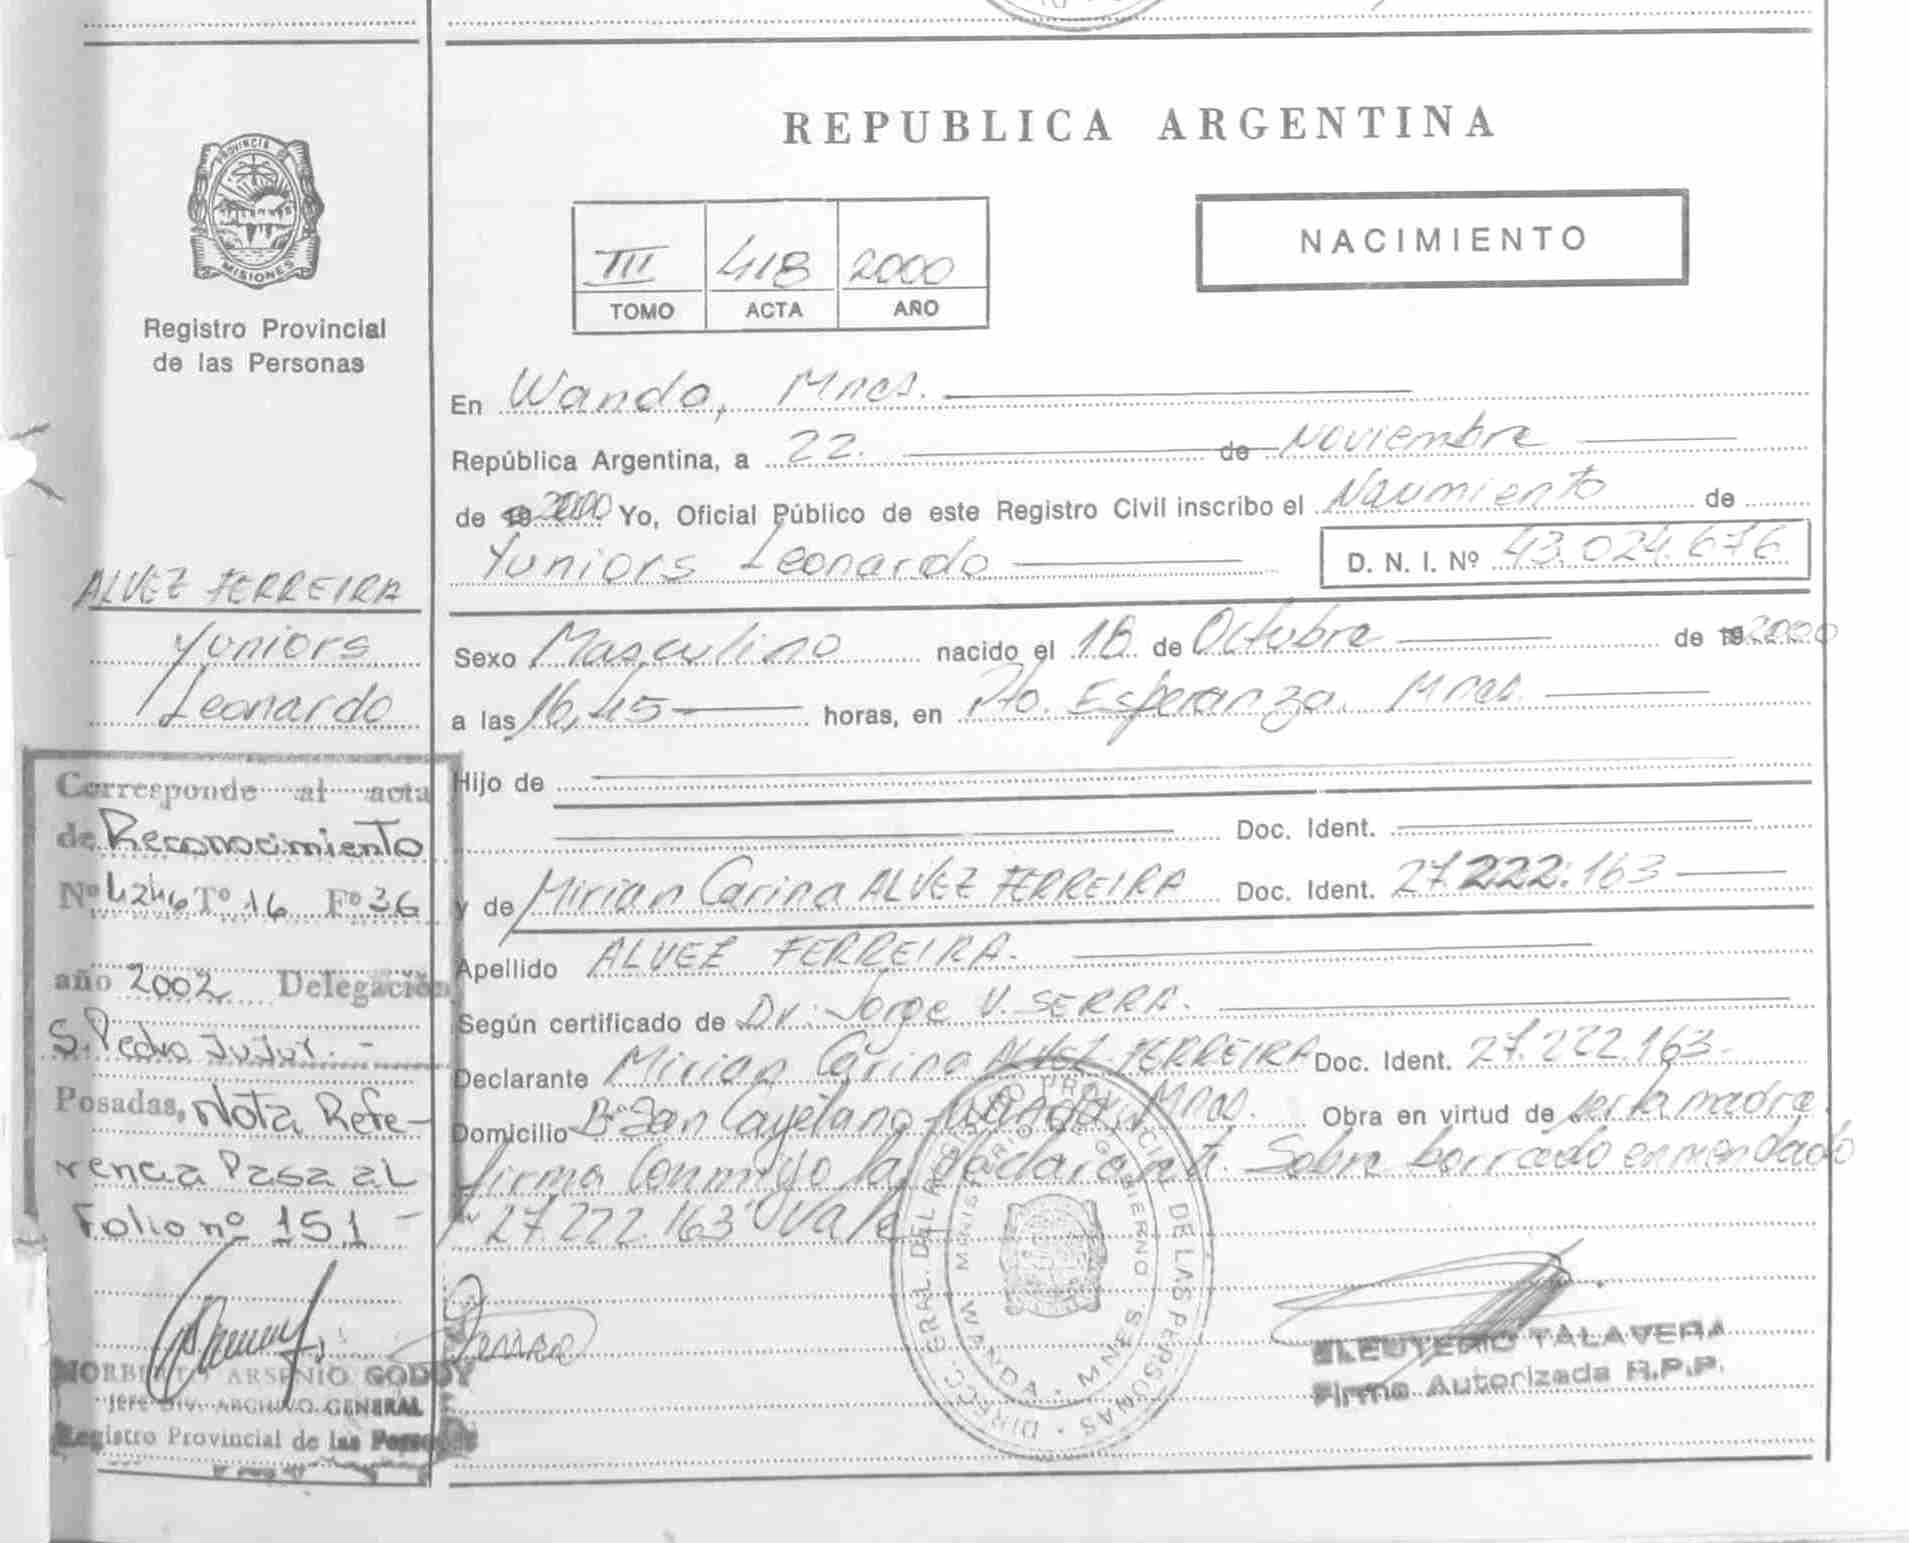 REPUBLICA ARGENTINA
PROVINCIA DE
MISIONES
Registro Provincial
de las Personas
III 418 2000
TOMO ACTA AÑO
NACIMIENTO
En Wanda, Mnes.
República Argentina, a 22. de Noviembre
de 19 2000 Yo, Oficial Público de este Registro Civil inscribo el Nacimiento de
Yuniors Leonardo D. N. I. Nº 43.024.676
ALVEZ FERREIRA
Yuniors
Leonardo
Sexo Masculino nacido el 18 de Octubre de 19 2000
a las 16,45 horas, en Pto. Esperanza. Mnes.
Hijo de
Doc. Ident.
y de Mirian Carina ALVEZ FERREIRA Doc. Ident. 27.222.163
Apellido ALVEZ FERREIRA.
Según certificado de Dr. Jorge V. SERRA.
Declarante Mirian Carina ALVEZ FERREIRA Doc. Ident. 27.222.163-
Domicilio Bº San Cayetano Wanda, Mnes. Obra en virtud de ser la madre.
firma conmigo la declarante. Sobre borrado enmendado
"27.222.163" Vale
Corresponde al acta
de Reconocimiento
Nº 4246 Tº 16 Fº 36
año 2002 Delegación
S. Pedro Jujuy. -
Posadas, Nota Refe-
rencia Pasa al
Folio nº 151 -
NORBERTO ARSENIO GODOY
JEFE DIV. ARCHIVO GENERAL
Registro Provincial de las Personas
DIRECC. GRAL. DEL REGISTRO PROVINCIAL DE LAS PERSONAS
MINISTERIO DE GOBIERNO
WANDA - MNES.
ELEUTERIO TALAVERA
Firma Autorizada R.P.P.